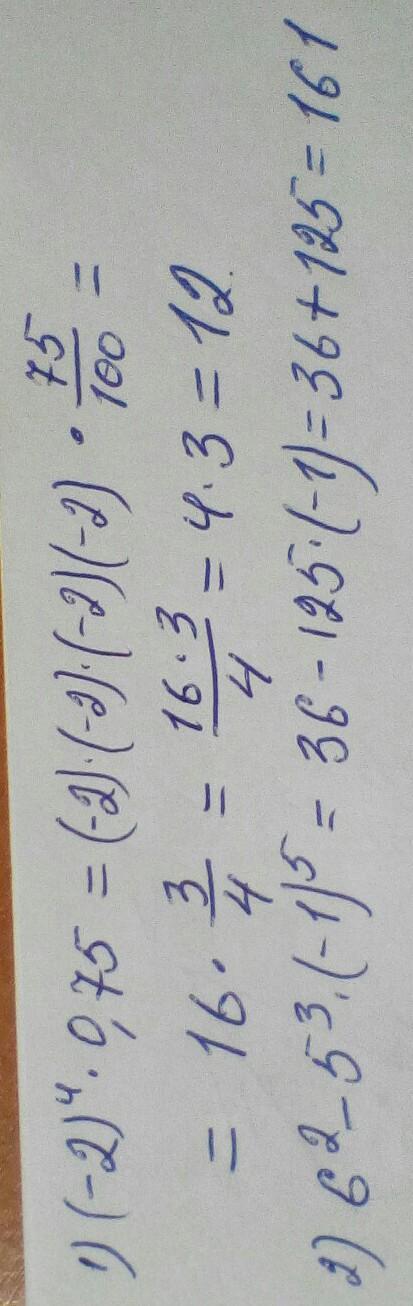 1) (-2)⁴ · 0,75 = (-2)·(-2)·(-2)(-2) · 75/100 =
= 16 · 3/4 = 16·3/4 = 4·3 = 12
2) 6² - 5³·(-1)⁵ = 36 - 125·(-1) = 36 + 125 = 161